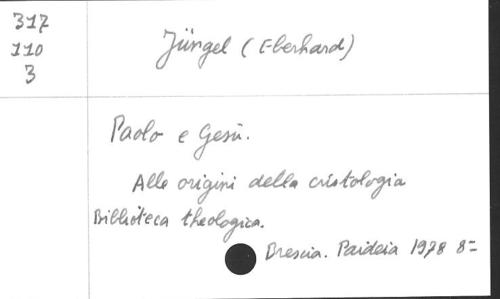 317
110
3
Jüngel (Eberhard)
Paolo e Gesù.
Alle origini della cristologia
Biblioteca theologica.
Brescia. Paideia 1978 8=